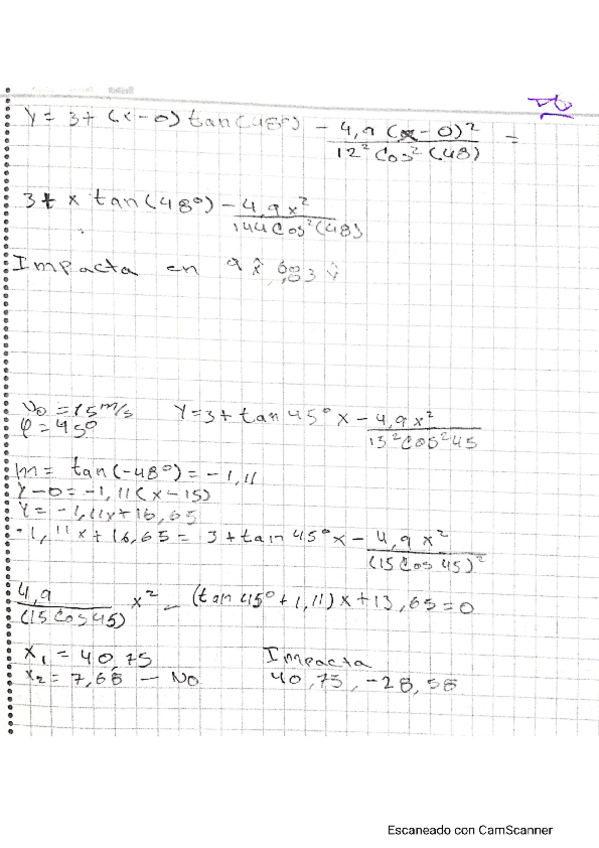 Y = 3 + (x-0) tan(48°) - 4,9 (x-0)² / 12² Cos² (48) =
3 + x tan(48°) - 4,9 x² / 144 Cos² (48)
Impacta en 9 x̂
V₀ = 15 m/s Y = 3 + tan 45° x - 4,9 x² / 15² Cos² 45
φ = 45°
m = tan(-48°) = -1,11
Y - 0 = -1,11 (x - 15)
Y = -1,11x + 16,65
-1,11x + 16,65 = 3 + tan 45° x - 4,9 x² / (15 Cos 45)²
4,9 / (15 Cos 45) x² - (tan 45° + 1,11) x + 13,65 = 0
x₁ = 40,75 Impacta
x₂ = 7,68 - No 40,75, -28,58
Escaneado con CamScanner